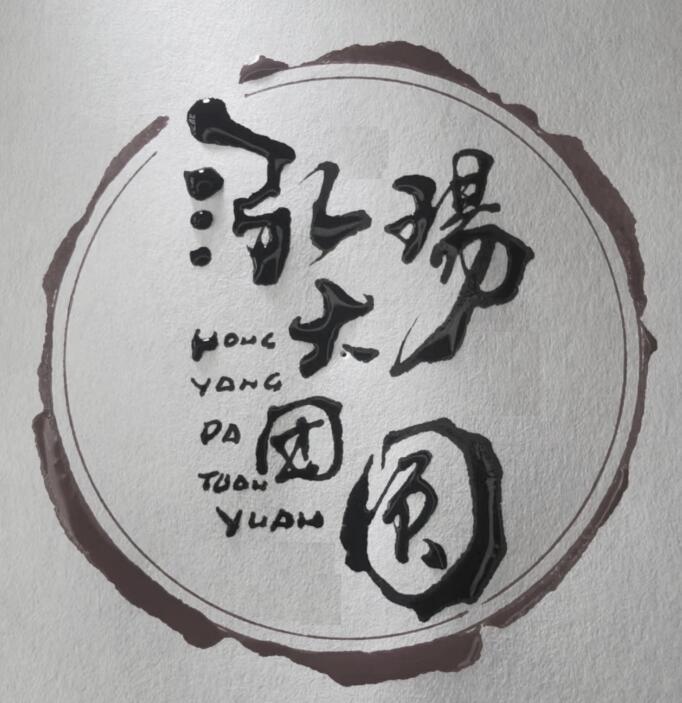 泓瑒
大
团
圆
HONG
YANG
DA
TUAN
YUAN